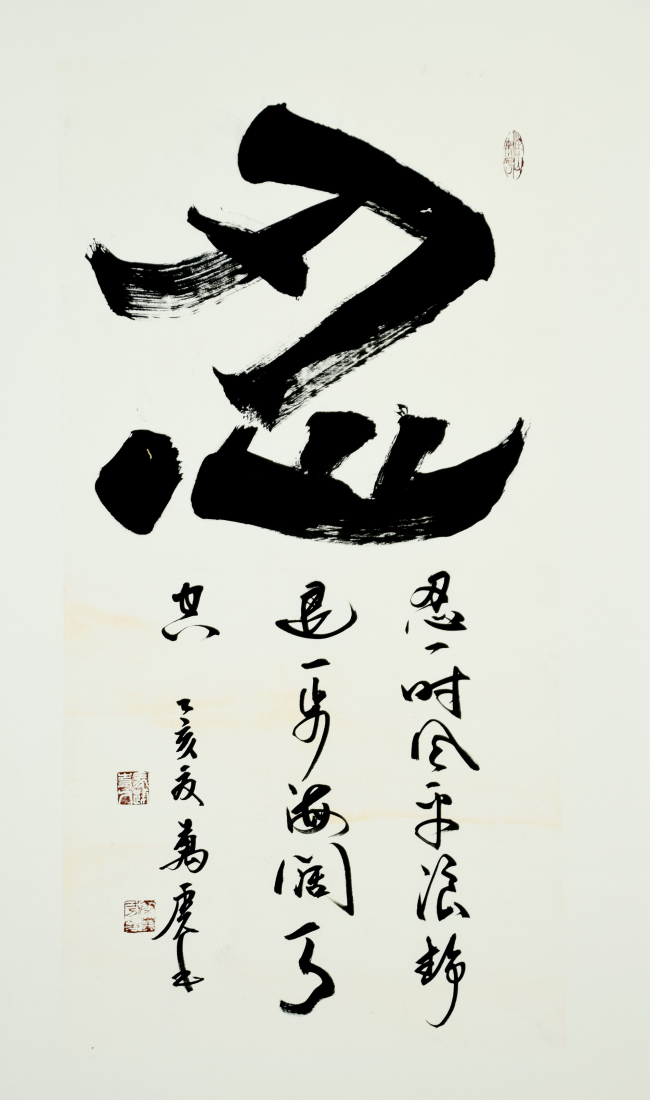 忍
忍一时风平浪静
退一步海阔天
空
乙亥夏萬虎书